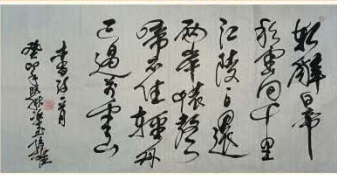 朝辭白帝
彩雲间千里
江陵一日還
兩岸猿聲
啼不住輕舟
已過萬重山
李白詩一首
癸卯年